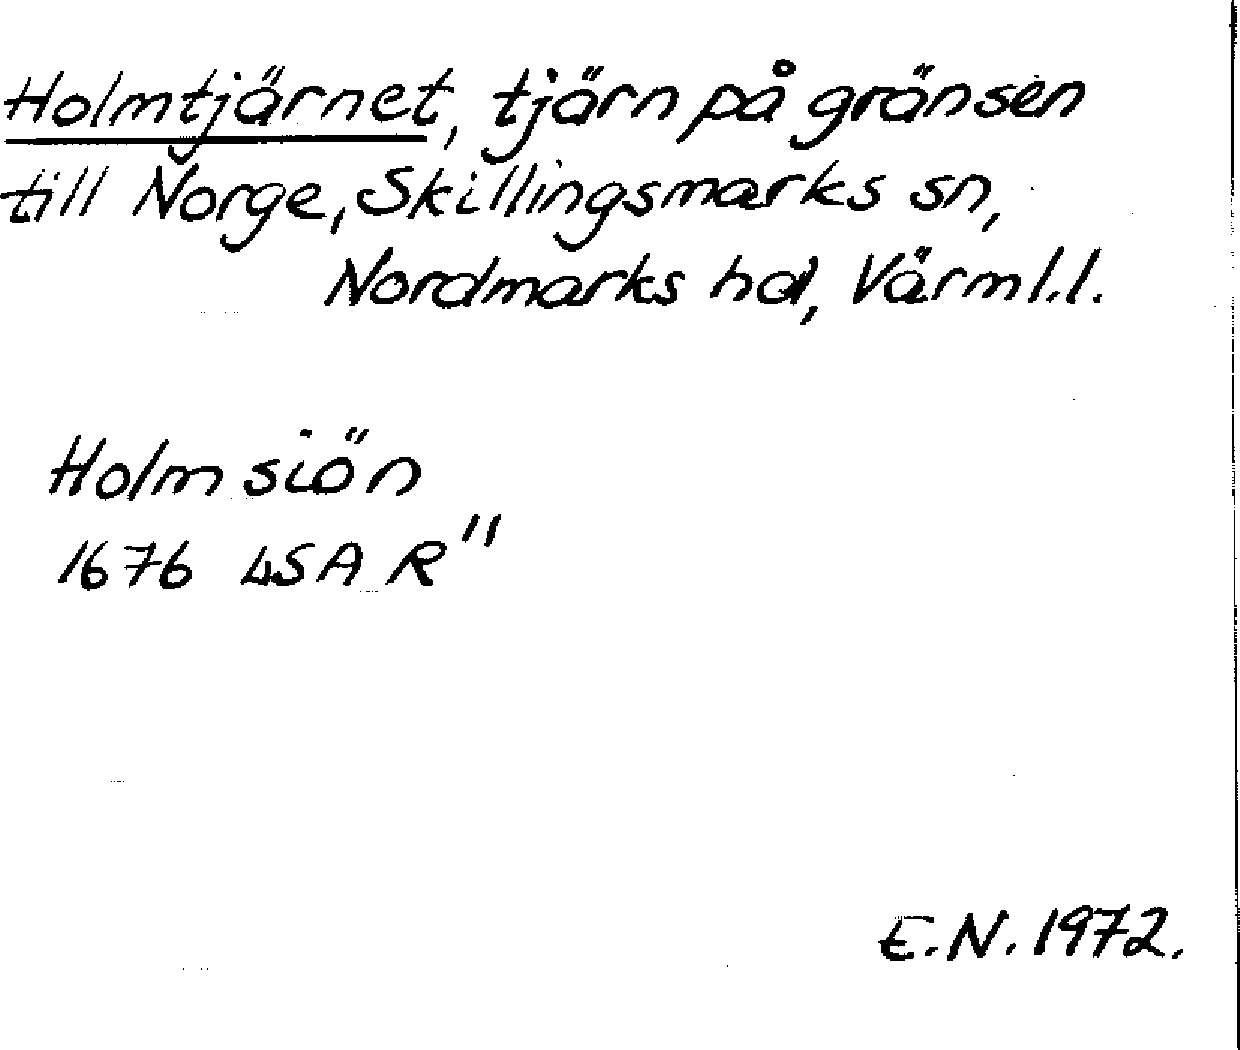 Holmtjärnet, tjärn på gränsen
till Norge, Skillingsmarks sn,
Nordmarks hd, Värml.l.
Holmsiön
1676 LSA R"
E.N. 1972.